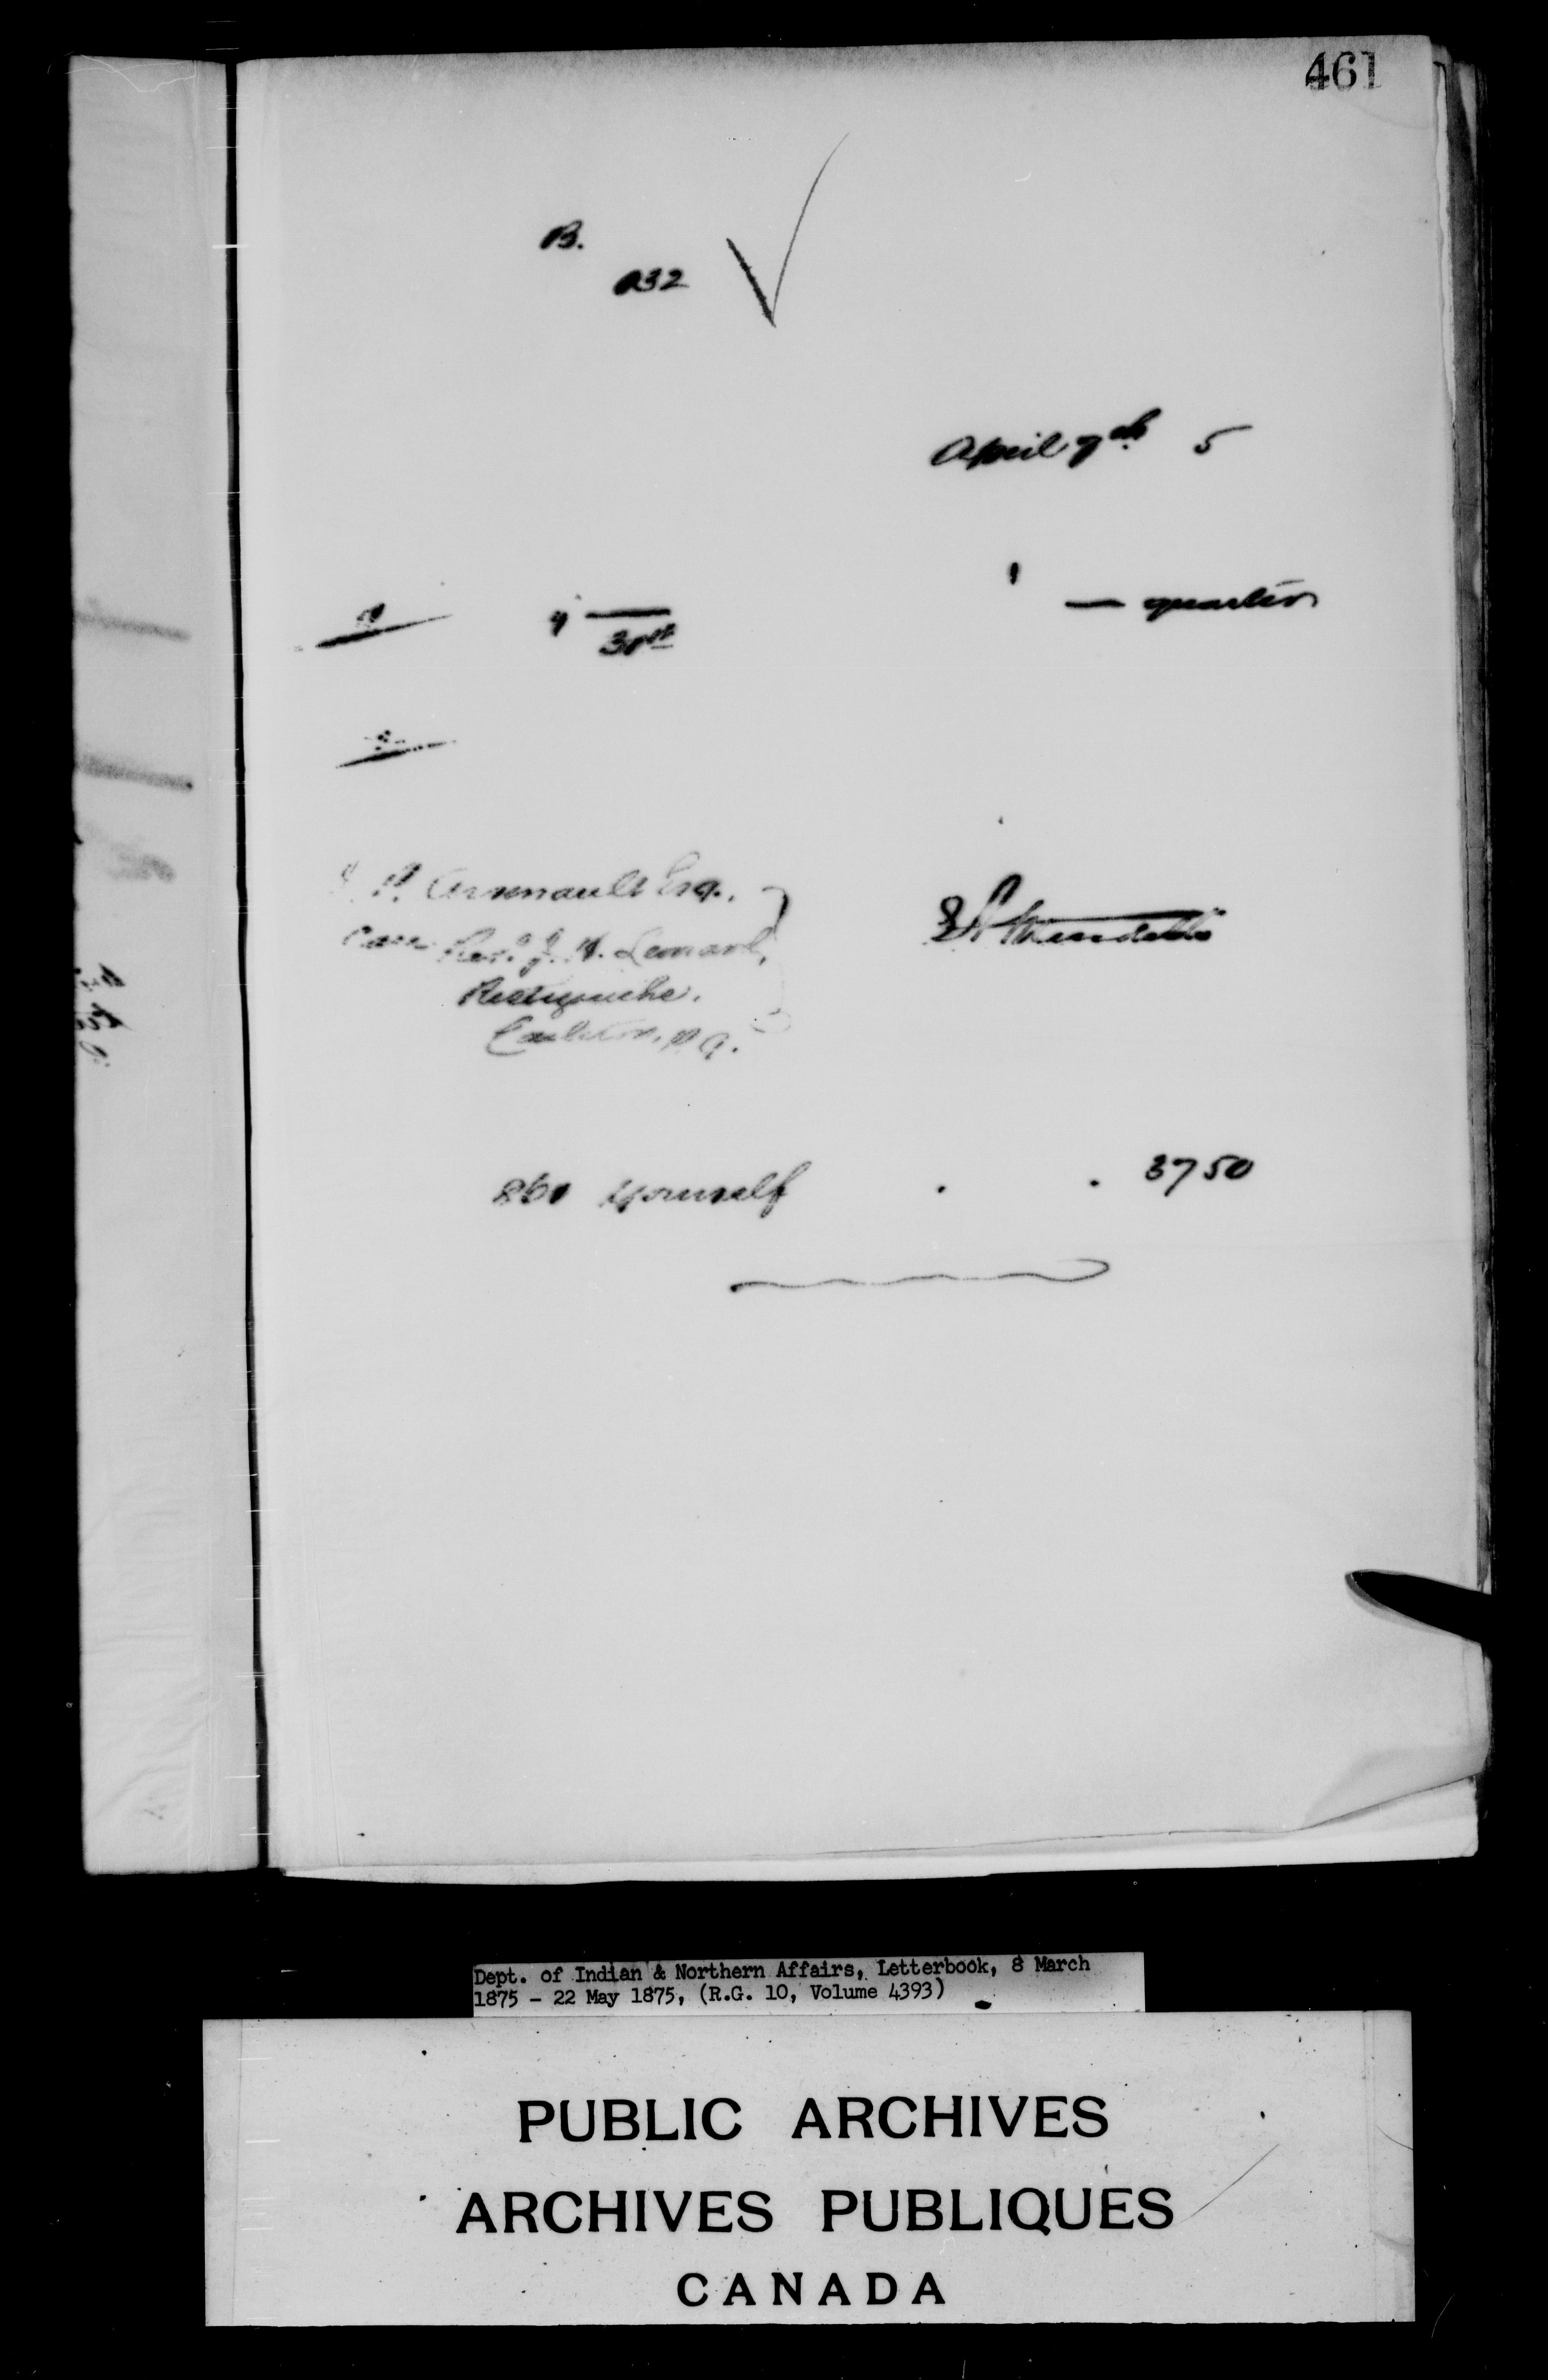 461
B.
932
April 7th 5
— quarter
31st
J. P. Arsenault Esq.,
Care Revd J. H. Leonard,
Restigouche.
Carleton, P.Q.
860 Yourself . . 3750
Dept. of Indian & Northern Affairs, Letterbook, 8 March
1875 - 22 May 1875, (R.G. 10, Volume 4393)
PUBLIC ARCHIVES
ARCHIVES PUBLIQUES
CANADA